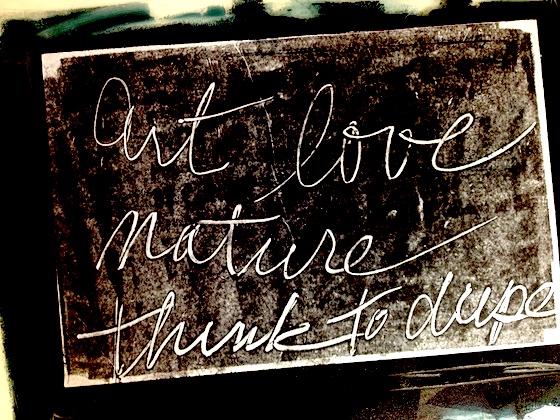 art love
nature
think to dupe